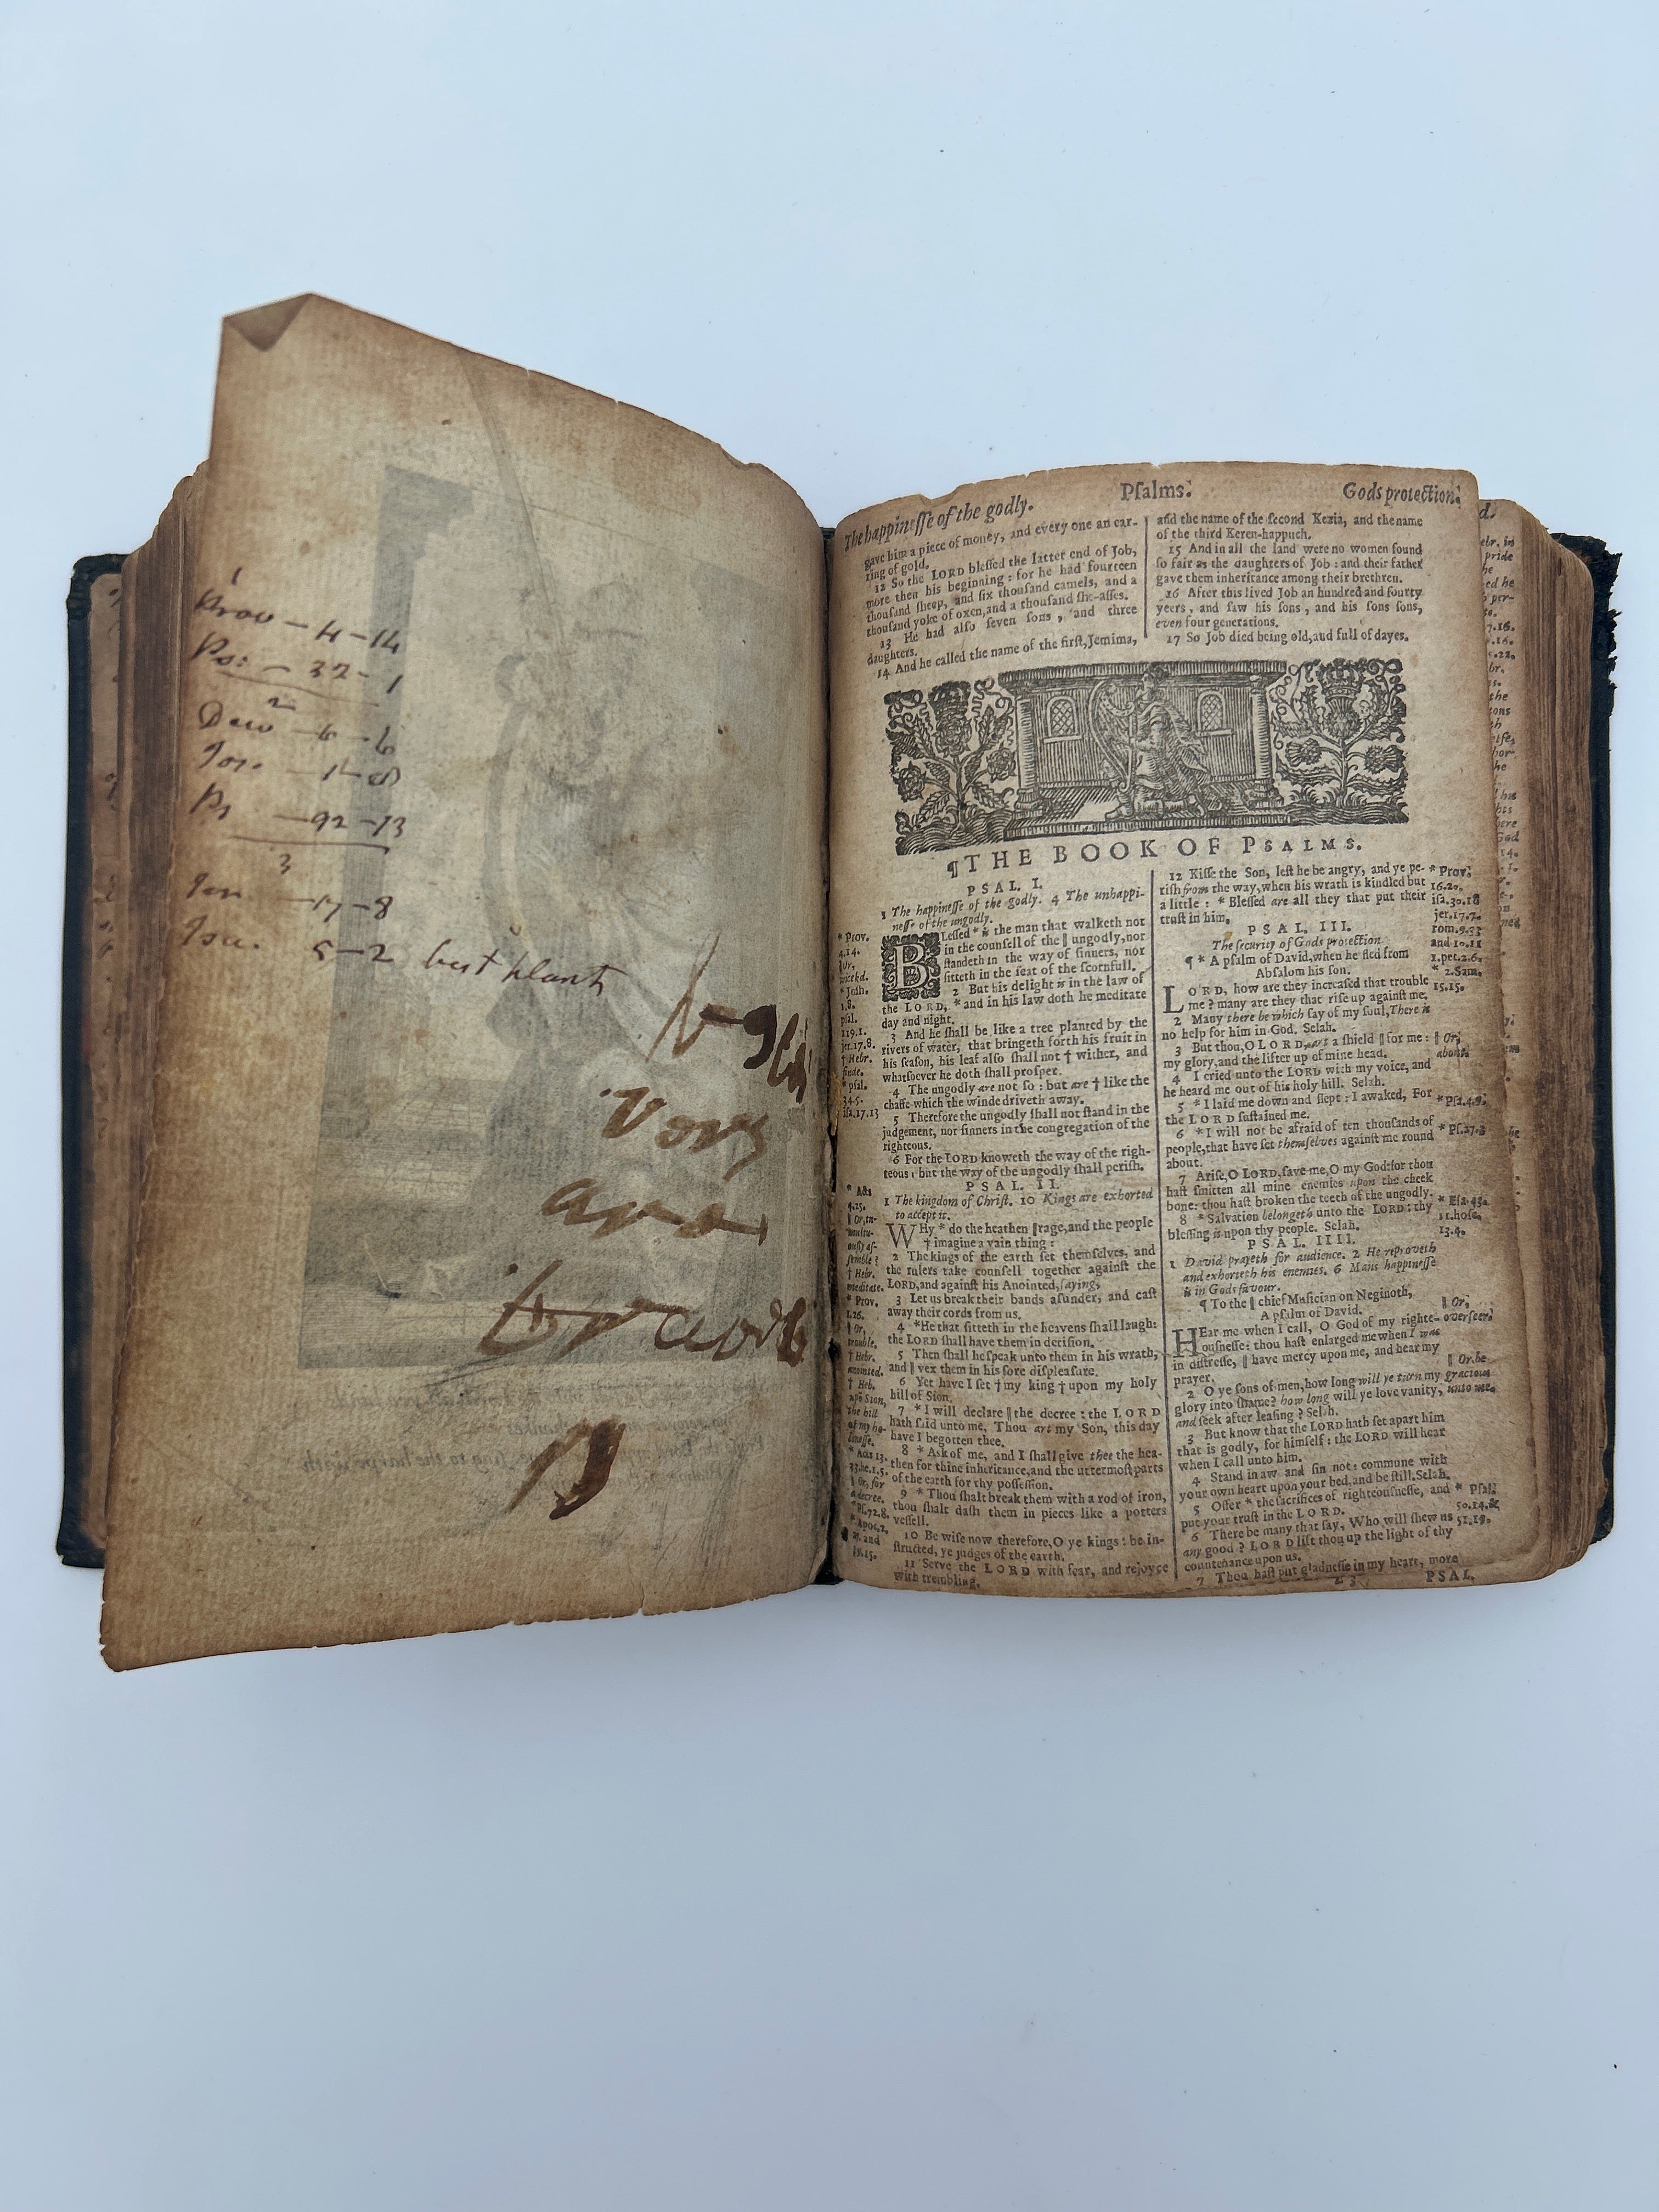 1
Prov - 4-14
Ps: - 32-1
2
Deu - 6-6
Jos. - 1-8
Ps - 92-13
3
Jer - 17-8
Isa. 5-2 best plants
The happinesse of the godly. Psalms. Gods protection.
gave him a piece of money, and every one an ear-
ring of gold.
12 So the LORD blessed the latter end of Job,
more then his beginning: for he had fourteen
thousand sheep, and six thousand camels, and a
thousand yoke of oxen, and a thousand she-asses.
13 He had also seven sons, and three
daughters.
14 And he called the name of the first, Jemima,
and the name of the second Kezia, and the name
of the third Keren-happuch.
15 And in all the land were no women found
so fair as the daughters of Job: and their father
gave them inheritance among their brethren.
16 After this lived Job an hundred and fourty
yeers, and saw his sons, and his sons sons,
even four generations.
17 So Job died being old, and full of dayes.
¶ THE BOOK OF PSALMS.
PSAL. I.
1 The happinesse of the godly. 4 The unhappi-
nesse of the ungodly.
BLessed * is the man that walketh not
in the counsell of the ‖ ungodly, nor
standeth in the way of sinners, nor
sitteth in the seat of the scornfull.
2 But his delight is in the law of
the LORD, * and in his law doth he meditate
day and night.
3 And he shall be like a tree planted by the
rivers of water, that bringeth forth his fruit in
his season, his leaf also shall not † wither, and
whatsoever he doth shall prosper.
4 The ungodly are not so: but are † like the
chaffe which the winde driveth away.
5 Therefore the ungodly shall not stand in the
judgement, nor sinners in the congregation of the
righteous.
6 For the LORD knoweth the way of the righ-
teous: but the way of the ungodly shall perish.
PSAL. II.
1 The kingdom of Christ. 10 Kings are exhorted
to accept it.
WHy * do the heathen ‖ rage, and the people
† imagine a vain thing:
2 The kings of the earth set themselves, and
the rulers take counsell together against the
LORD, and against his Anointed, saying,
3 Let us break their bands asunder, and cast
away their cords from us.
4 * He that sitteth in the heavens shall laugh:
the LORD shall have them in derision.
5 Then shall he speak unto them in his wrath,
and ‖ vex them in his sore displeasure.
6 Yet have I set † my king † upon my holy
hill of Sion.
7 * I will declare ‖ the decree: the LORD
hath said unto me, Thou art my Son, this day
have I begotten thee.
8 * Ask of me, and I shall give thee the hea-
then for thine inheritance, and the uttermost parts
of the earth for thy possession.
9 * Thou shalt break them with a rod of iron,
thou shalt dash them in pieces like a potters
vessell.
10 Be wise now therefore, O ye kings: be in-
structed, ye judges of the earth.
11 Serve the LORD with fear, and rejoyce
with trembling.
* Prov.
4.14.
‖ Or,
wicked.
* Josh.
1.8.
psal.
119.1.
jer.17.8.
† Hebr.
fade.
* psal.
34.5.
isa.17.13
* Acts
4.25.
‖ Or, tu-
multu-
ously as-
semble?
† Hebr.
meditate.
* Prov.
1.26.
‖ Or,
trouble.
† Hebr.
anointed.
† Heb.
upō Sion,
the hill
of my ho-
linesse.
* Acts 13.
33. he.1.5.
‖ Or, for
a decree.
* Ps.72.8.
* Apoc.2.
27. and
19.15.
12 Kisse the Son, lest he be angry, and ye pe-
rish from the way, when his wrath is kindled but
a little: * Blessed are all they that put their
trust in him.
PSAL. III.
The security of Gods protection.
¶ * A psalm of David, when he fled from
Absalom his son.
LORD, how are they increased that trouble
me? many are they that rise up against me.
2 Many there be which say of my soul, There is
no help for him in God. Selah.
3 But thou, O LORD, art a shield ‖ for me:
my glory, and the lifter up of mine head.
4 I cried unto the LORD with my voice, and
he heard me out of his holy hill. Selah.
5 * I laid me down and slept: I awaked, For
the LORD sustained me.
6 * I will not be afraid of ten thousands of
people, that have set themselves against me round
about.
7 Arise, O LORD, save me, O my God: for thou
hast smitten all mine enemies upon the cheek
bone: thou hast broken the teeth of the ungodly.
8 * Salvation belongeth unto the LORD: thy
blessing is upon thy people. Selah.
PSAL. IIII.
1 David prayeth for audience. 2 He reproveth
and exhorteth his enemies. 6 Mans happinesse
is in Gods favour.
¶ To the ‖ chief Musician on Neginoth,
A psalm of David.
HEar me when I call, O God of my righte-
ousnesse: thou hast enlarged me when I was
in distresse, ‖ have mercy upon me, and hear my
prayer.
2 O ye sons of men, how long will ye turn my
glory into shame? how long will ye love vanity,
and seek after leasing? Selah.
3 But know that the LORD hath set apart him
that is godly, for himself: the LORD will hear
when I call unto him.
4 Stand in aw and sin not: commune with
your own heart upon your bed, and be still. Selah.
5 Offer * the sacrifices of righteousnesse, and
put your trust in the LORD.
6 There be many that say, Who will shew us
any good? LORD lift thou up the light of thy
countenance upon us.
7 Thou hast put gladnesse in my heart, more
PSAL.
* Prov.
16.20.
isa.30.18
jer.17.7.
rom.9.33
and 10.11
1.pet.2.6.
* 2.Sam.
15.15.
‖ Or,
about.
* Psa.4.9.
* Ps.27.3
* Esa.43.
11. hose.
13.4.
‖ Or,
overseer.
‖ Or, be
gracious
unto me.
* Psal.
50.14. &
51.19.